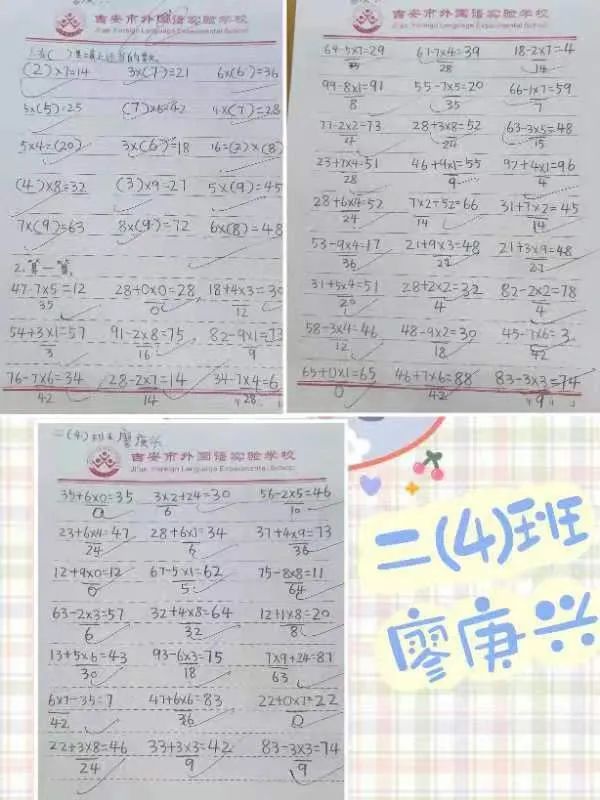 吉安市外国语实验学校
Ji'an Foreign Language Experimental School
(2)×7=14 3×(7)=21 6×(6)=36
5×(5)=25 (7)×6=42 4×(7)=28
5×4=(20) 3×(6)=18 16=(2)×(8)
(4)×8=32 (3)×9=27 5×(9)=45
7×(9)=63 8×(9)=72 6×(8)=48
2.算一算。
47-7×5=12 28+0×0=28 18+4×3=30
35 0 12
54+3×1=57 91-2×8=75 82-9×1=73
3 16 9
76-7×6=34 28-2×7=14 34-7×4=6
42 14 28
吉安市外国语实验学校
Ji'an Foreign Language Experimental School
64-5×7=29 67-7×4=39 18-2×7=4
35 28 14
99-8×1=91 55-7×5=20 66-1×7=59
8 35 7
77-2×2=73 28+3×8=52 63-3×5=48
4 24 15
23+7×4=51 46+9×1=55 92+4×1=96
28 9 4
28+6×4=52 7×2+52=66 31+7×2=45
24 14 14
53-9×4=17 21+9×3=48 21+3×9=48
36 27 27
31+5×4=51 28+2×2=32 82-2×2=78
20 4 4
58-3×4=46 48-9×2=30 45-7×6=3
12 18 42
65+0×1=65 46+7×6=88 83-3×3=74
0 42 9
二(4)班 廖庚兴
吉安市外国语实验学校
Ji'an Foreign Language Experimental School
35+6×0=35 3×2+24=30 56-2×5=46
0 6 10
23+6×4=47 28+6×1=34 37+4×9=73
24 6 36
12+9×0=12 67-5×1=62 75-8×8=11
0 5 64
63-2×3=57 32+4×8=64 12+1×8=20
6 32 8
13+5×6=43 93-6×3=75 7×9+24=87
30 18 63
6×7-35=7 47+6×6=83 22+0×7=22
42 36 0
22+3×8=46 33+3×3=42 83-3×3=74
24 9 9
二(4)班
廖庚兴